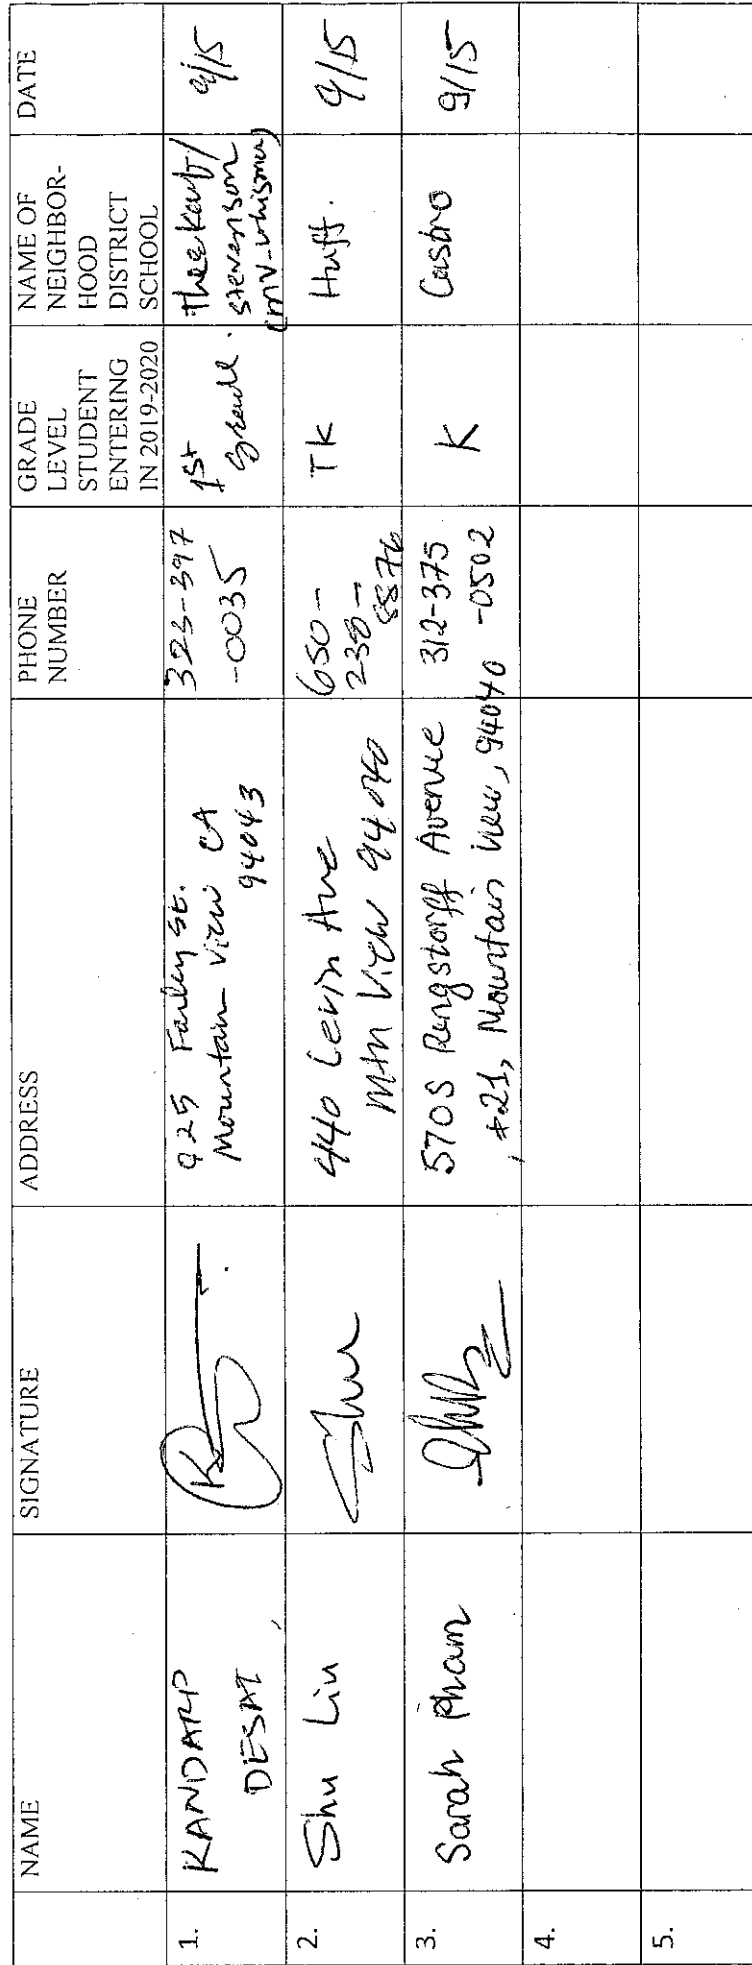 NAME
SIGNATURE
ADDRESS
PHONE
NUMBER
GRADE
LEVEL
STUDENT
ENTERING
IN 2019-2020
NAME OF
NEIGHBOR-
HOOD
DISTRICT
SCHOOL
DATE
1.
KANDARP
DESAI
925 Farley St.
Mountain View CA
94043
323-397
-0035
1st
Grade.
Theuerkauf/
Stevenson
(MV-Whisman)
9/15
2.
Shu Liu
Shu
440 Levin Ave
Mtn View 94040
650-
238-
1st
TK
Huff.
9/15
3.
Sarah Pham
570S Rengstorff Avenue
#21, Mountain View, 94040
312-375
-0502
K
Castro
9/15
4.
5.